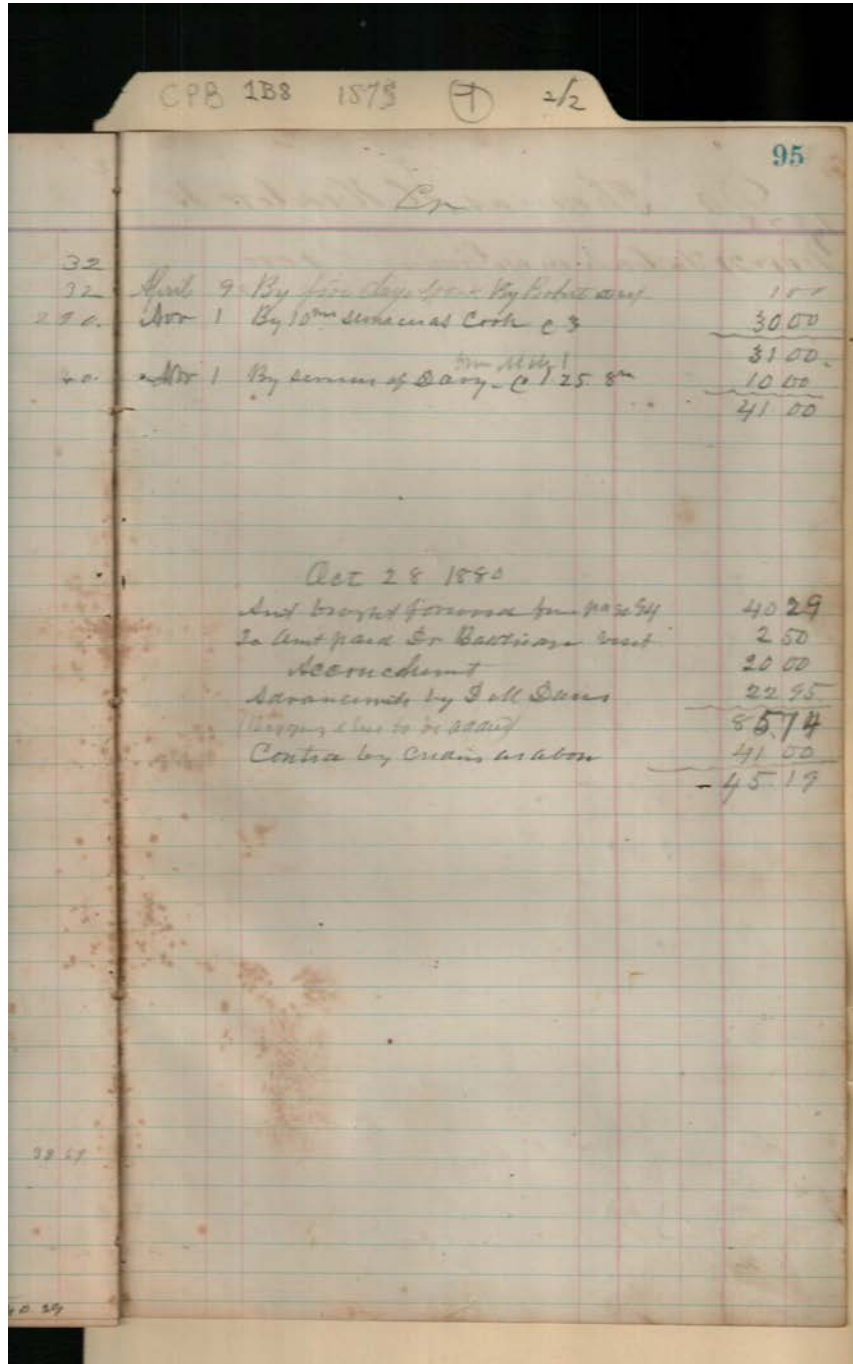 CPB 1B8 1879 T 2/2
95
Cr
32
32 April 9 By five days 1 00
2 70. Nov 1 By 10 ms services as Cook @ 3 30 00
31 00.
from Mch 1
40. Nov 1 By services of Davy @ 1 25 8 ms 10 00
41 00
Oct 28 1880
Amt brought forward from page 94 40 29
To Amt paid Dr visit 2 50
Accouchment 20 00
Advancements by 22 95
to be added 85 74
Contra by Credits as above 41 00
- 45 19
39 67
40 29